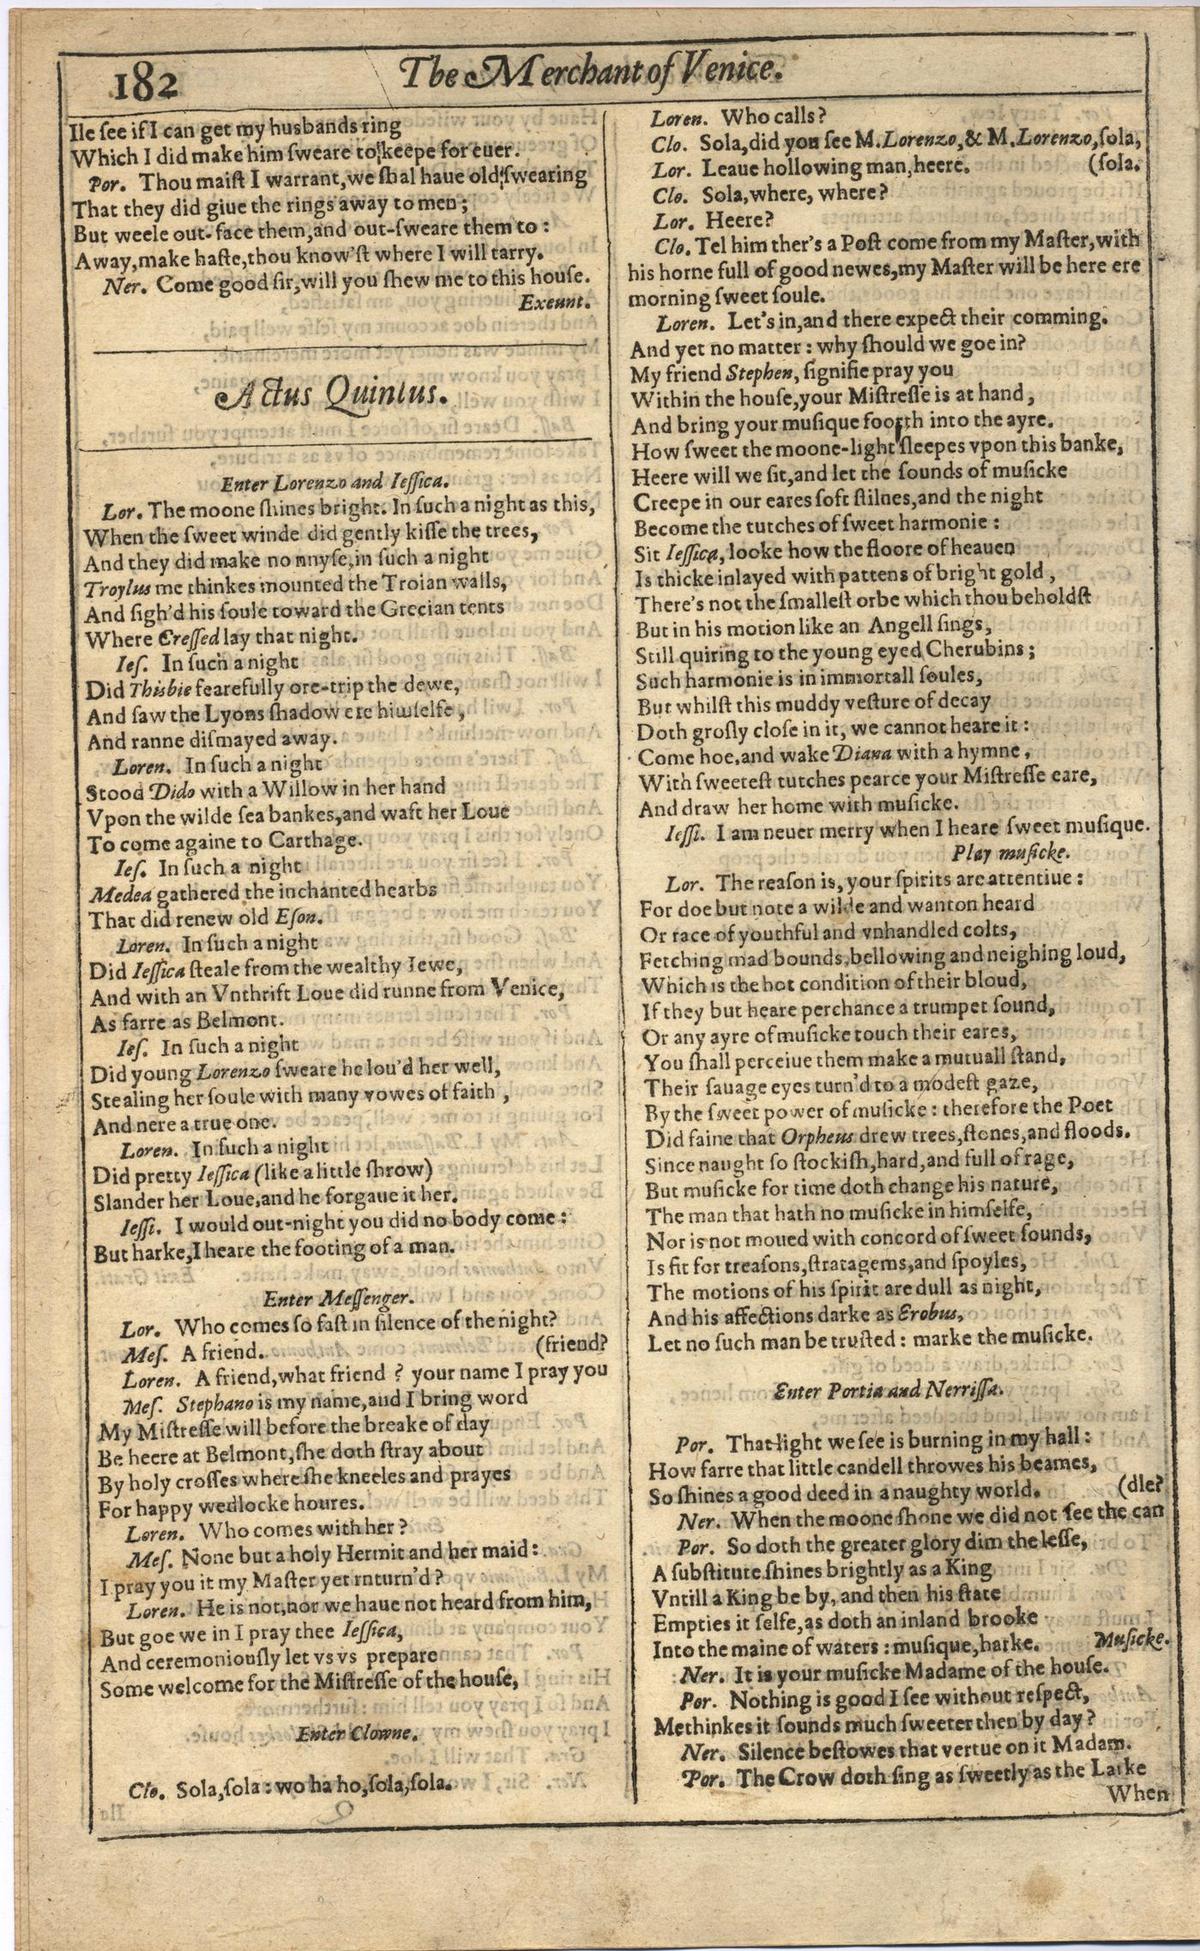 182
The Merchant of Venice.
Ile ſee if I can get my husbands ring
Which I did make him ſweare to keepe for euer.
Por. Thou maiſt I warrant, we ſhal haue old ſwearing
That they did giue the rings away to men;
But weele out-face them, and out-ſweare them to:
Away, make haſte, thou know'ſt where I will tarry.
Ner. Come good ſir, will you ſhew me to this houſe.
Exeunt.
Actus Quintus.
Enter Lorenzo and Ieſſica.
Lor. The moone ſhines bright. In ſuch a night as this,
When the ſweet winde did gently kiſſe the trees,
And they did make no nnyſe, in ſuch a night
Troylus me thinkes mounted the Troian walls,
And ſigh'd his ſoule toward the Grecian tents
Where Creſſed lay that night.
Ieſ. In ſuch a night
Did Thisbie fearefully ore-trip the dewe,
And ſaw the Lyons ſhadow ere himſelfe,
And ranne diſmayed away.
Loren. In ſuch a night
Stood Dido with a Willow in her hand
Vpon the wilde ſea bankes, and waft her Loue
To come againe to Carthage.
Ieſ. In ſuch a night
Medea gathered the inchanted hearbs
That did renew old Eſon.
Loren. In ſuch a night
Did Ieſſica ſteale from the wealthy Iewe,
And with an Vnthrift Loue did runne from Venice,
As farre as Belmont.
Ieſ. In ſuch a night
Did young Lorenzo ſweare he lou'd her well,
Stealing her ſoule with many vowes of faith,
And nere a true one.
Loren. In ſuch a night
Did pretty Ieſſica (like a little ſhrow)
Slander her Loue, and he forgaue it her.
Ieſſi. I would out-night you did no body come:
But harke, I heare the footing of a man.
Enter Meſſenger.
Lor. Who comes ſo faſt in ſilence of the night?
Meſ. A friend. (friend?
Loren. A friend, what friend? your name I pray you
Meſ. Stephano is my name, and I bring word
My Miſtreſſe will before the breake of day
Be heere at Belmont, ſhe doth ſtray about
By holy croſſes where ſhe kneeles and prayes
For happy wedlocke houres.
Loren. Who comes with her?
Meſ. None but a holy Hermit and her maid:
I pray you it my Maſter yet rnturn'd?
Loren. He is not, nor we haue not heard from him,
But goe we in I pray thee Ieſſica,
And ceremoniouſly let vs vs prepare
Some welcome for the Miſtreſſe of the houſe,
Enter Clowne.
Clo. Sola, ſola: wo ha ho, ſola, ſola.
Loren. Who calls?
Clo. Sola, did you ſee M. Lorenzo, & M. Lorenzo, ſola,
Lor. Leaue hollowing man, heere. (ſola.
Clo. Sola, where, where?
Lor. Heere?
Clo. Tel him ther's a Poſt come from my Maſter, with
his horne full of good newes, my Maſter will be here ere
morning ſweet ſoule.
Loren. Let's in, and there expect their comming.
And yet no matter: why ſhould we goe in?
My friend Stephen, ſignifie pray you
Within the houſe, your Miſtreſſe is at hand,
And bring your muſique foorth into the ayre.
How ſweet the moone-light ſleepes vpon this banke,
Heere will we ſit, and let the ſounds of muſicke
Creepe in our eares ſoft ſtilnes, and the night
Become the tutches of ſweet harmonie:
Sit Ieſſica, looke how the floore of heauen
Is thicke inlayed with pattens of bright gold,
There's not the ſmalleſt orbe which thou beholdſt
But in his motion like an Angell ſings,
Still quiring to the young eyed Cherubins;
Such harmonie is in immortall ſoules,
But whilſt this muddy veſture of decay
Doth groſly cloſe in it, we cannot heare it:
Come hoe, and wake Diana with a hymne,
With ſweeteſt tutches pearce your Miſtreſſe eare,
And draw her home with muſicke.
Ieſſi. I am neuer merry when I heare ſweet muſique.
Play muſicke.
Lor. The reaſon is, your ſpirits are attentiue:
For doe but note a wilde and wanton heard
Or race of youthful and vnhandled colts,
Fetching mad bounds, bellowing and neighing loud,
Which is the hot condition of their bloud,
If they but heare perchance a trumpet ſound,
Or any ayre of muſicke touch their eares,
You ſhall perceiue them make a mutuall ſtand,
Their ſauage eyes turn'd to a modeſt gaze,
By the ſweet power of muſicke: therefore the Poet
Did faine that Orpheus drew trees, ſtones, and floods.
Since naught ſo ſtockiſh, hard, and full of rage,
But muſicke for time doth change his nature,
The man that hath no muſicke in himſelfe,
Nor is not moued with concord of ſweet ſounds,
Is fit for treaſons, ſtratagems, and ſpoyles,
The motions of his ſpirit are dull as night,
And his affections darke as Erobus,
Let no ſuch man be truſted: marke the muſicke.
Enter Portia and Nerriſſa.
Por. That light we ſee is burning in my hall:
How farre that little candell throwes his beames,
So ſhines a good deed in a naughty world. (dle?
Ner. When the moone ſhone we did not ſee the can
Por. So doth the greater glory dim the leſſe,
A ſubſtitute ſhines brightly as a King
Vntill a King be by, and then his ſtate
Empties it ſelfe, as doth an inland brooke
Into the maine of waters: muſique, harke. Muſicke.
Ner. It is your muſicke Madame of the houſe.
Por. Nothing is good I ſee without reſpect,
Methinkes it ſounds much ſweeter then by day?
Ner. Silence beſtowes that vertue on it Madam.
Por. The Crow doth ſing as ſweetly as the Larke
When